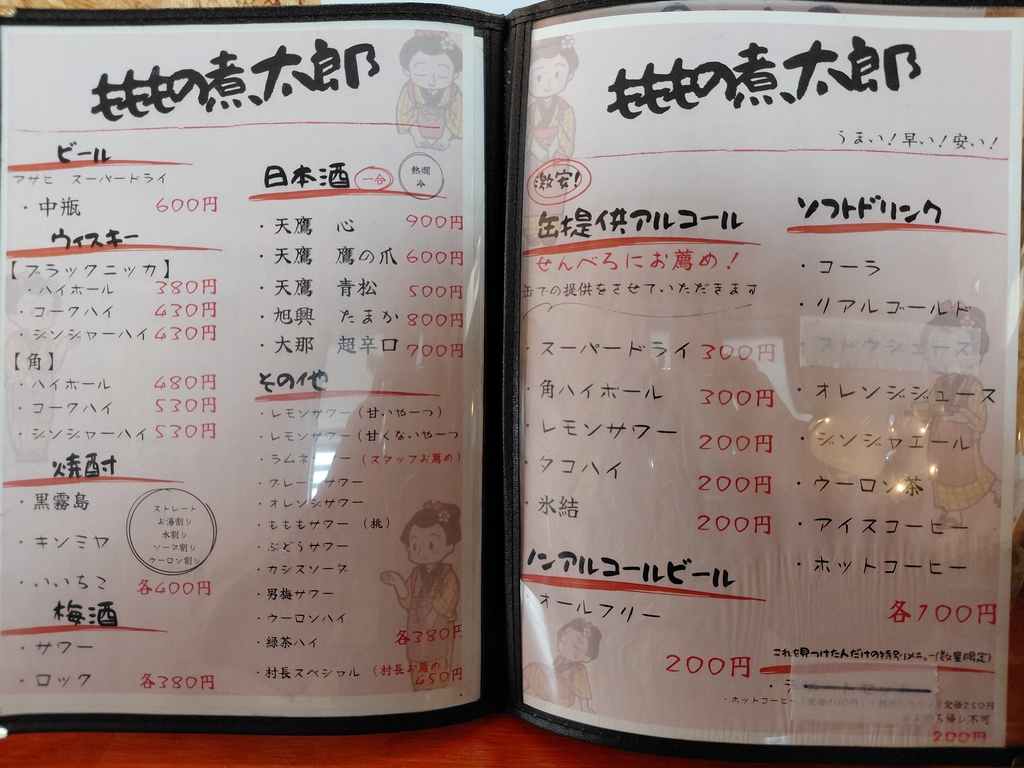 もももの煮太郎
ビール
アサヒ スーパードライ
・中瓶 600円
ウィスキー
【ブラックニッカ】
・ハイボール 380円
・コークハイ 430円
・ジンジャーハイ 430円
【角】
・ハイボール 480円
・コークハイ 530円
・ジンジャーハイ 530円
焼酎
・黒霧島
・キンミヤ
・いいちこ
ストレート
お湯割り
水割り
ソーダ割り
ウーロン割り
各400円
梅酒
・サワー
・ロック 各380円
日本酒 一合
熱燗
冷
・天鷹 心 900円
・天鷹 鷹の爪 600円
・天鷹 青松 500円
・旭興 たまか 800円
・大那 超辛口 700円
その他
・レモンサワー（甘いやーつ）
・レモンサワー（甘くないやーつ
・ラムネ ー（スタッフお薦め）
・グレープサワー
・オレンジサワー
・ももサワー（桃）
・ぶどうサワー
・カシスソーダ
・男梅サワー
・ウーロンハイ
・緑茶ハイ
各380円
・村長スペシャル（村長お薦め）
650円
もももの煮太郎
うまい！早い！安い！
激安！
缶提供アルコール
せんべろにお薦め！
缶での提供をさせていただきます
・スーパードライ 300円
・角ハイボール 300円
・レモンサワー 200円
・タコハイ 200円
・氷結 200円
ノンアルコールビール
・オールフリー
200円
ソフトドリンク
・コーラ
・リアルゴールド
ブドウジュース
・オレンジジュース
・ジンジャエール
・ウーロン茶
・アイスコーヒー
・ホットコーヒー
各100円
これを見つけた人だけの特別メニュー（数量限定）
・ホットコーヒー
（定価250円
持ち帰り不可
200円